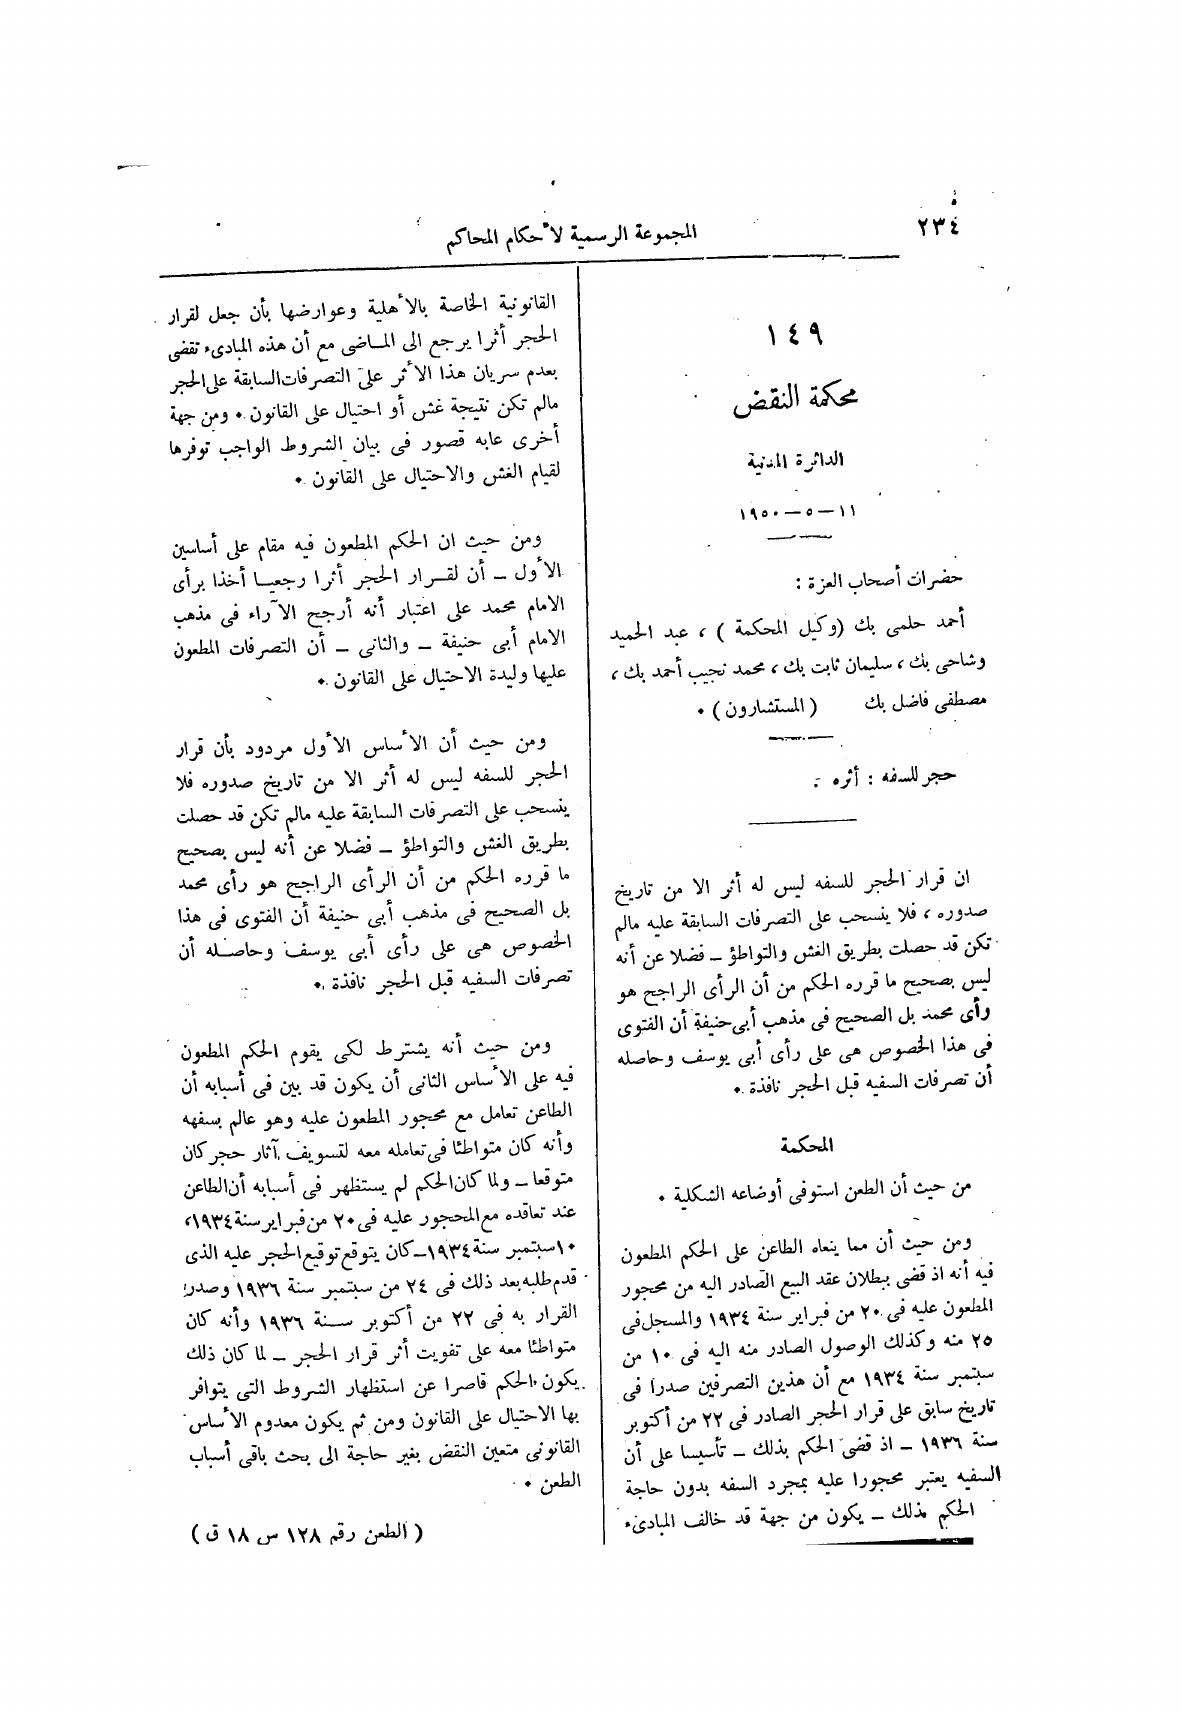 ٢٣٤
المجموعة الرسمية لأحكام المحاكم
١٤٩
محكمة النقض
الدائرة المدنية
١١ – ٥ – ١٩٥٠
حضرات أصحاب العزة :
أحمد حلمى بك (وكيل المحكمة ) ، عبد الحميد
وشاحى بك ، سليمان ثابت بك ، محمد نجيب أحمد بك ،
مصطفى فاضل بك ( المستشارون ) .
حجر للسفه : أثره .
ان قرار الحجر للسفه ليس له أثر الا من تاريخ
صدوره ، فلا ينسحب على التصرفات السابقة عليه مالم
تكن قد حصلت بطريق الغش والتواطؤ – فضلا عن أنه
ليس بصحيح ما قرره الحكم من أن الرأى الراجح هو
رأى محمد بل الصحيح فى مذهب أبى حنيفة أن الفتوى
فى هذا الخصوص هى على رأى أبى يوسف وحاصله
أن تصرفات السفيه قبل الحجر نافذة .
المحكمة
من حيث أن الطعن استوفى أوضاعه الشكلية .
ومن حيث أن مما ينعاه الطاعن على الحكم المطعون
فيه أنه اذ قضى ببطلان عقد البيع الصادر اليه من محجور
المطعون عليه فى ٢٠ من فبراير سنة ١٩٣٤ والمسجل فى
٢٥ منه وكذلك الوصول الصادر منه اليه فى ١٠ من
سبتمبر سنة ١٩٣٤ مع أن هذين التصرفين صدرا فى
تاريخ سابق على قرار الحجر الصادر فى ٢٢ من أكتوبر
سنة ١٩٣٦ – اذ قضى الحكم بذلك – تأسيسا على أن
السفيه يعتبر محجورا عليه بمجرد السفه بدون حاجة
الحكم بذلك – يكون من جهة قد خالف المبادىء
القانونية الخاصة بالأهلية وعوارضها بأن جعل لقرار
الحجر أثرا يرجع الى الماضى مع أن هذه المبادىء تقضى
بعدم سريان هذا الأثر على التصرفات السابقة على الحجر
مالم تكن نتيجة غش أو احتيال على القانون . ومن جهة
أخرى عابه قصور فى بيان الشروط الواجب توفرها
لقيام الغش والاحتيال على القانون .
ومن حيث ان الحكم المطعون فيه مقام على أساسين
الأول – أن لقرار الحجر أثرا رجعيا أخذا برأى
الامام محمد على اعتبار أنه أرجح الآراء فى مذهب
الامام أبى حنيفة – والثانى – أن التصرفات المطعون
عليها وليدة الاحتيال على القانون .
ومن حيث أن الأساس الأول مردود بأن قرار
الحجر للسفه ليس له أثر الا من تاريخ صدوره فلا
ينسحب على التصرفات السابقة عليه مالم تكن قد حصلت
بطريق الغش والتواطؤ – فضلا عن أنه ليس بصحيح
ما قرره الحكم من أن الرأى الراجح هو رأى محمد
بل الصحيح فى مذهب أبى حنيفة أن الفتوى فى هذا
الخصوص هى على رأى أبى يوسف وحاصله أن
تصرفات السفيه قبل الحجر نافذة .
ومن حيث أنه يشترط لكى يقوم الحكم المطعون
فيه على الأساس الثانى أن يكون قد بين فى أسبابه أن
الطاعن تعامل مع محجور المطعون عليه وهو عالم بسفهه
وأنه كان متواطئا فى تعامله معه لتسويف آثار حجر كان
متوقعا – ولما كان الحكم لم يستظهر فى أسبابه أن الطاعن
عند تعاقده مع المحجور عليه فى ٢٠ من فبراير سنة ١٩٣٤،
١٠ سبتمبر سنة ١٩٣٤ – كان يتوقع توقيع الحجر عليه الذى
قدم طلبه بعد ذلك فى ٢٤ من سبتمبر سنة ١٩٣٦ وصدر
القرار به فى ٢٢ من أكتوبر سنة ١٩٣٦ وأنه كان
متواطئا معه على تفويت أثر قرار الحجر – لما كان ذلك
يكون الحكم قاصرا عن استظهار الشروط التى يتوافر
بها الاحتيال على القانون ومن ثم يكون معدوم الأساس
القانونى متعين النقض بغير حاجة الى بحث باقى أسباب
الطعن .
( الطعن رقم ١٢٨ س ١٨ ق )